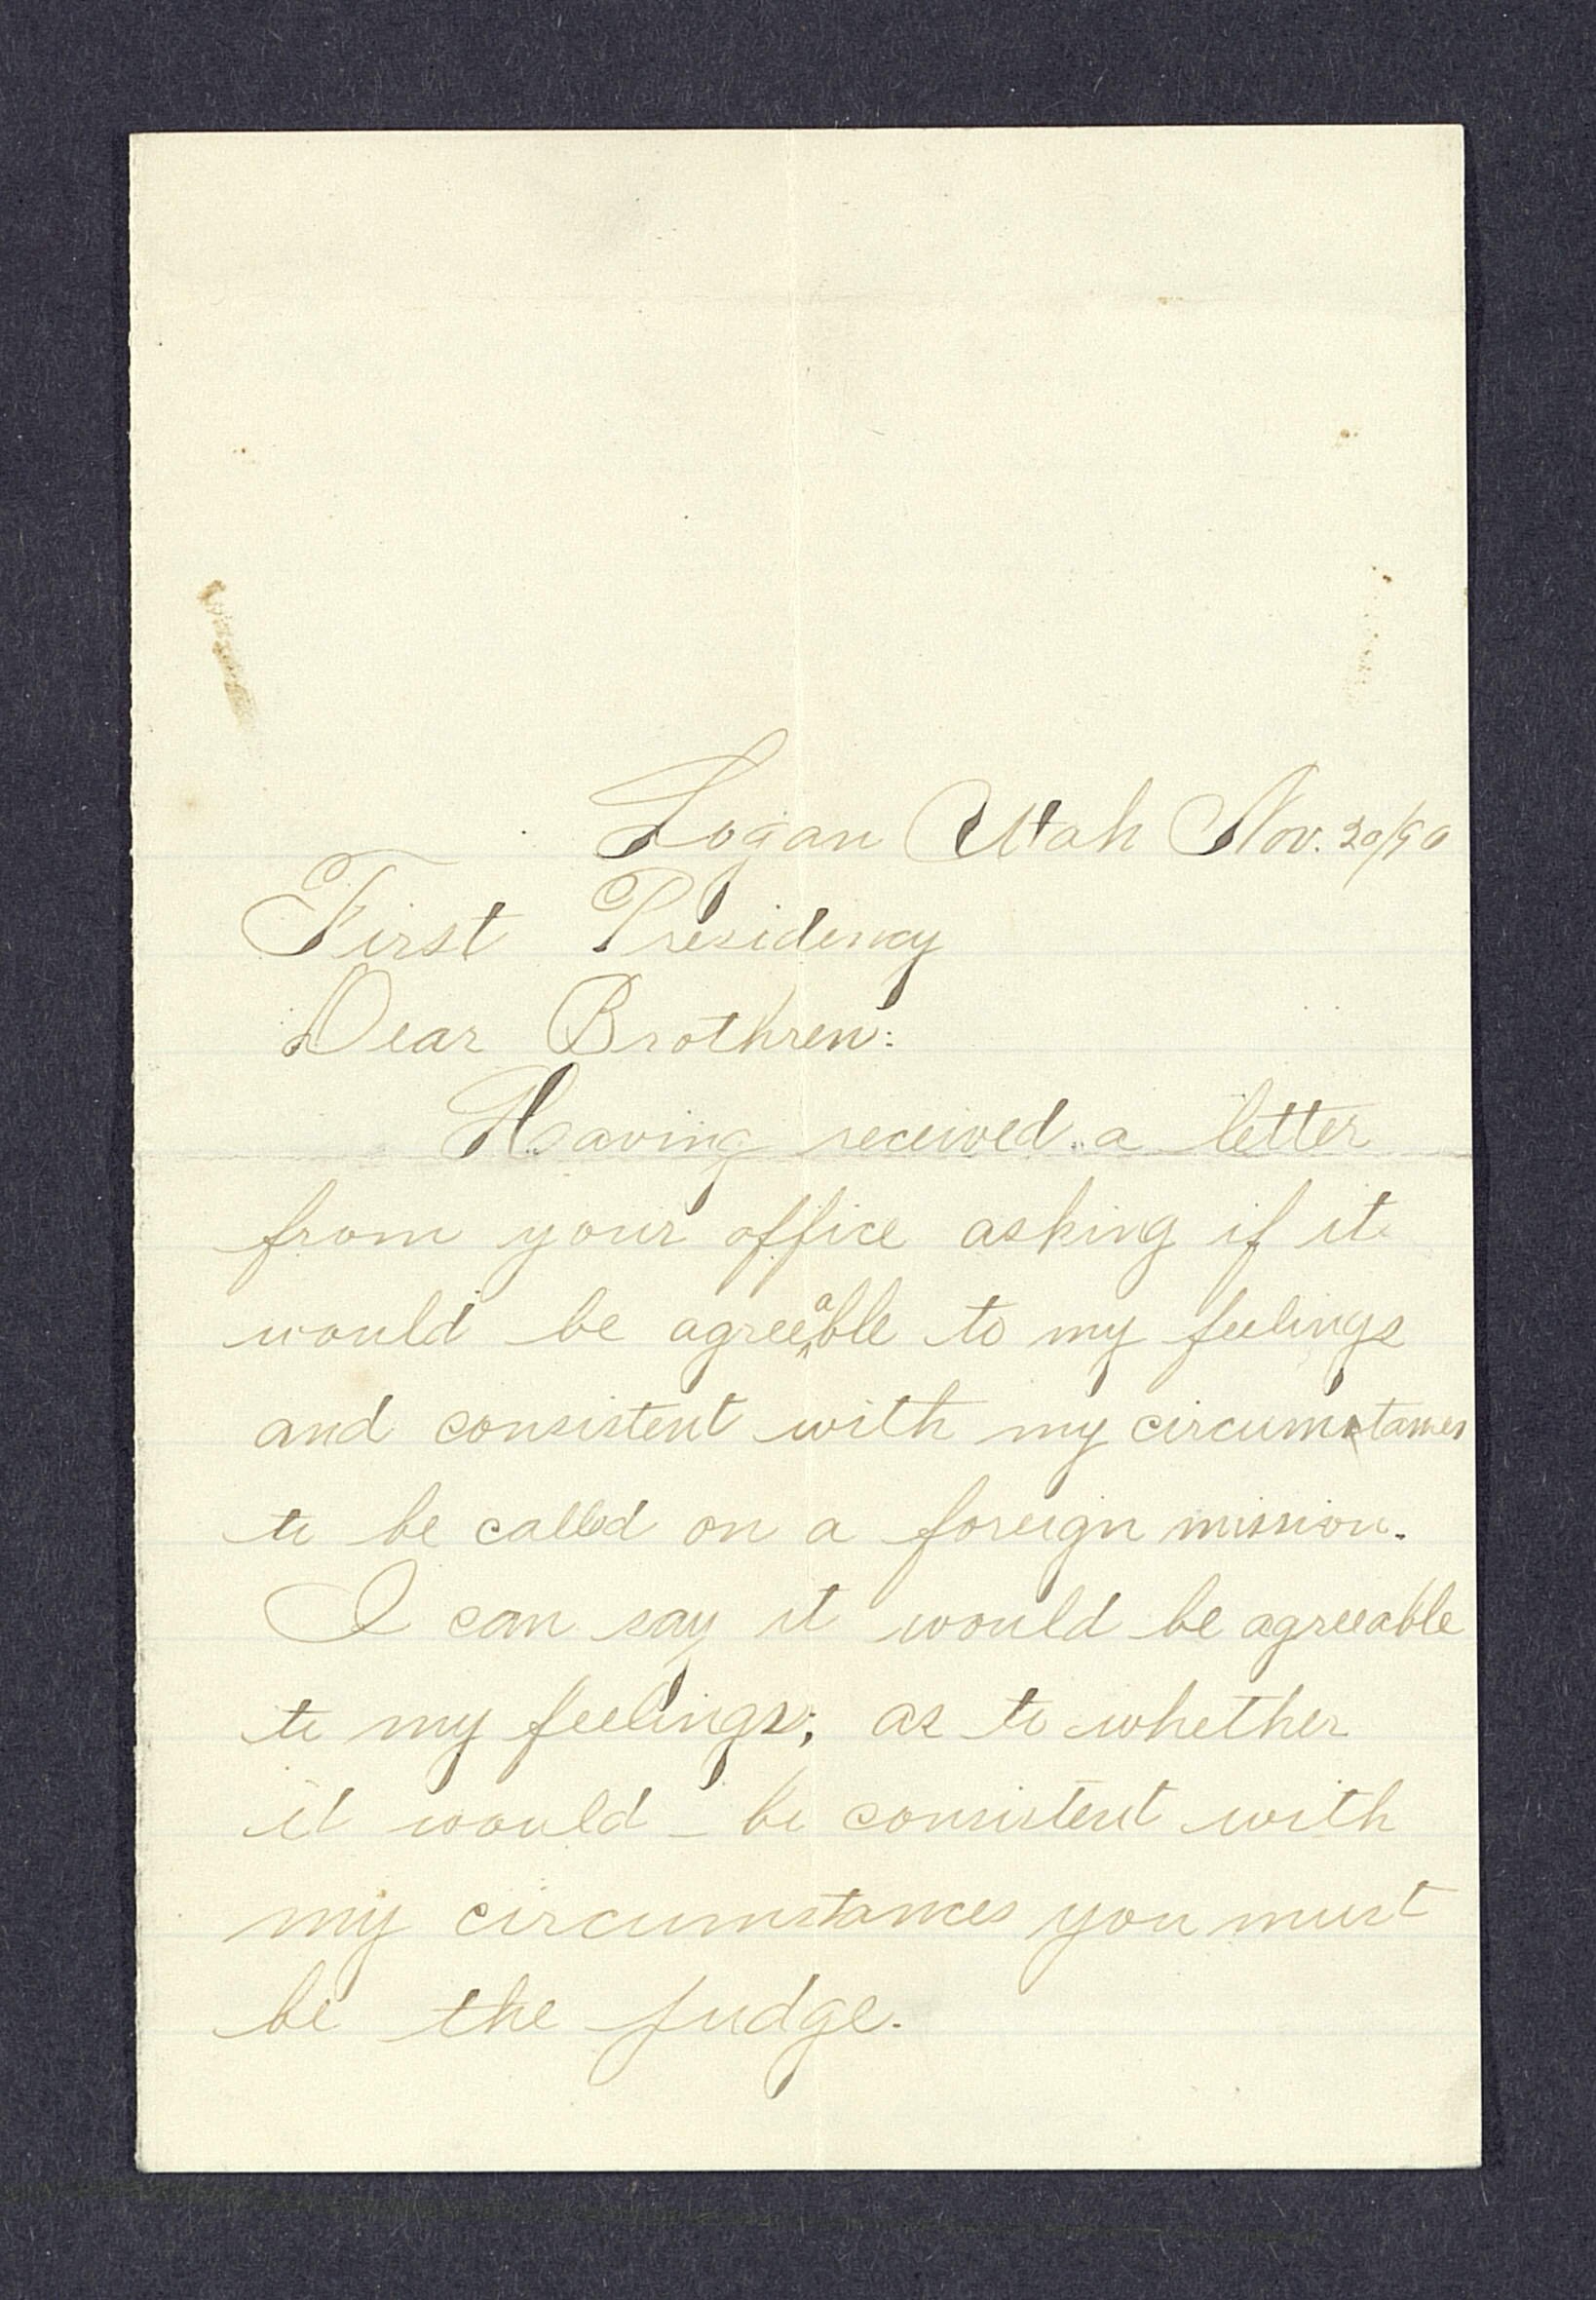 Logan Utah Nov. 20/90
First Presidency
Dear Brothren:
Having received a letter
from your office asking if it
would be agreeable to my feelings
and consistent with my circumstances
to be called on a foreign mission.
I can say it would be agreeable
to my feelings; as to whether
it would be consistent with
my circumstances you must
be the judge.